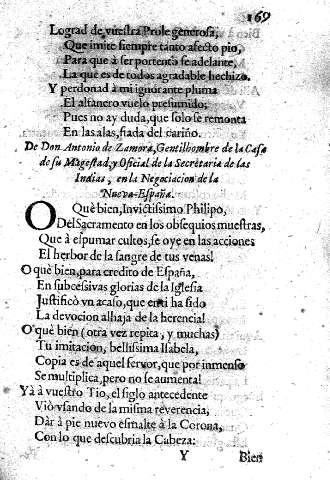 169
Lograd de vuestra Prole generosa,
Que imite siempre tanto afecto pio,
Para que à ser portento se adelante,
La que es de todos agradable hechizo.
Y perdonad à mi ignorante pluma
El altanero vuelo presumido;
Pues no ay duda, que solo se remonta
En las alas, fiada del cariño.
De Don Antonio de Zamora, Gentilhombre de la Casa
de su Magestad, y Oficial de la Secretaria de las
Indias, en la Negociacion de la
Nueva-España.
O Què bien, Invictissimo Philipo,
Del Sacramento en los obsequios muestras,
Que à espumar cultos, se oye en las acciones
El herbor de la sangre de tus venas!
O què bien, para credito de España,
En subcessivas glorias de la Iglesia
Justificò vn acaso, que en ti ha sido
La devocion alhaja de la herencia!
O què bien (otra vez repita, y muchas)
Tu imitacion, bellissima Isabela,
Copia es de aquel fervor, que por inmenso
Se multiplica, pero no se aumenta!
Yà à vuestro Tio, el siglo antecedente
Viò vsando de la misma reverencia,
Dàr à pie nuevo esmalte à la Corona,
Con lo que descubria la Cabeza:
Y Bien